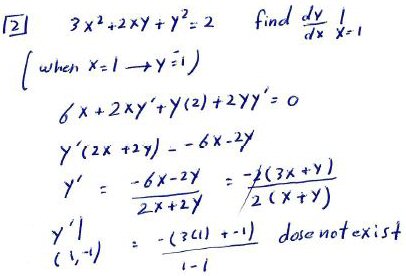 [2] 3x² + 2xy + y² = 2 find dy/dx | x=1
(when x=1 → y=-1)
6x + 2xy' + y(2) + 2yy' = 0
y'(2x + 2y) = -6x - 2y
y' = (-6x - 2y)/(2x + 2y) = -2(3x + y)/2(x + y)
y'|(1,-1) = -(3(1) + -1)/(1-1) dose not exist